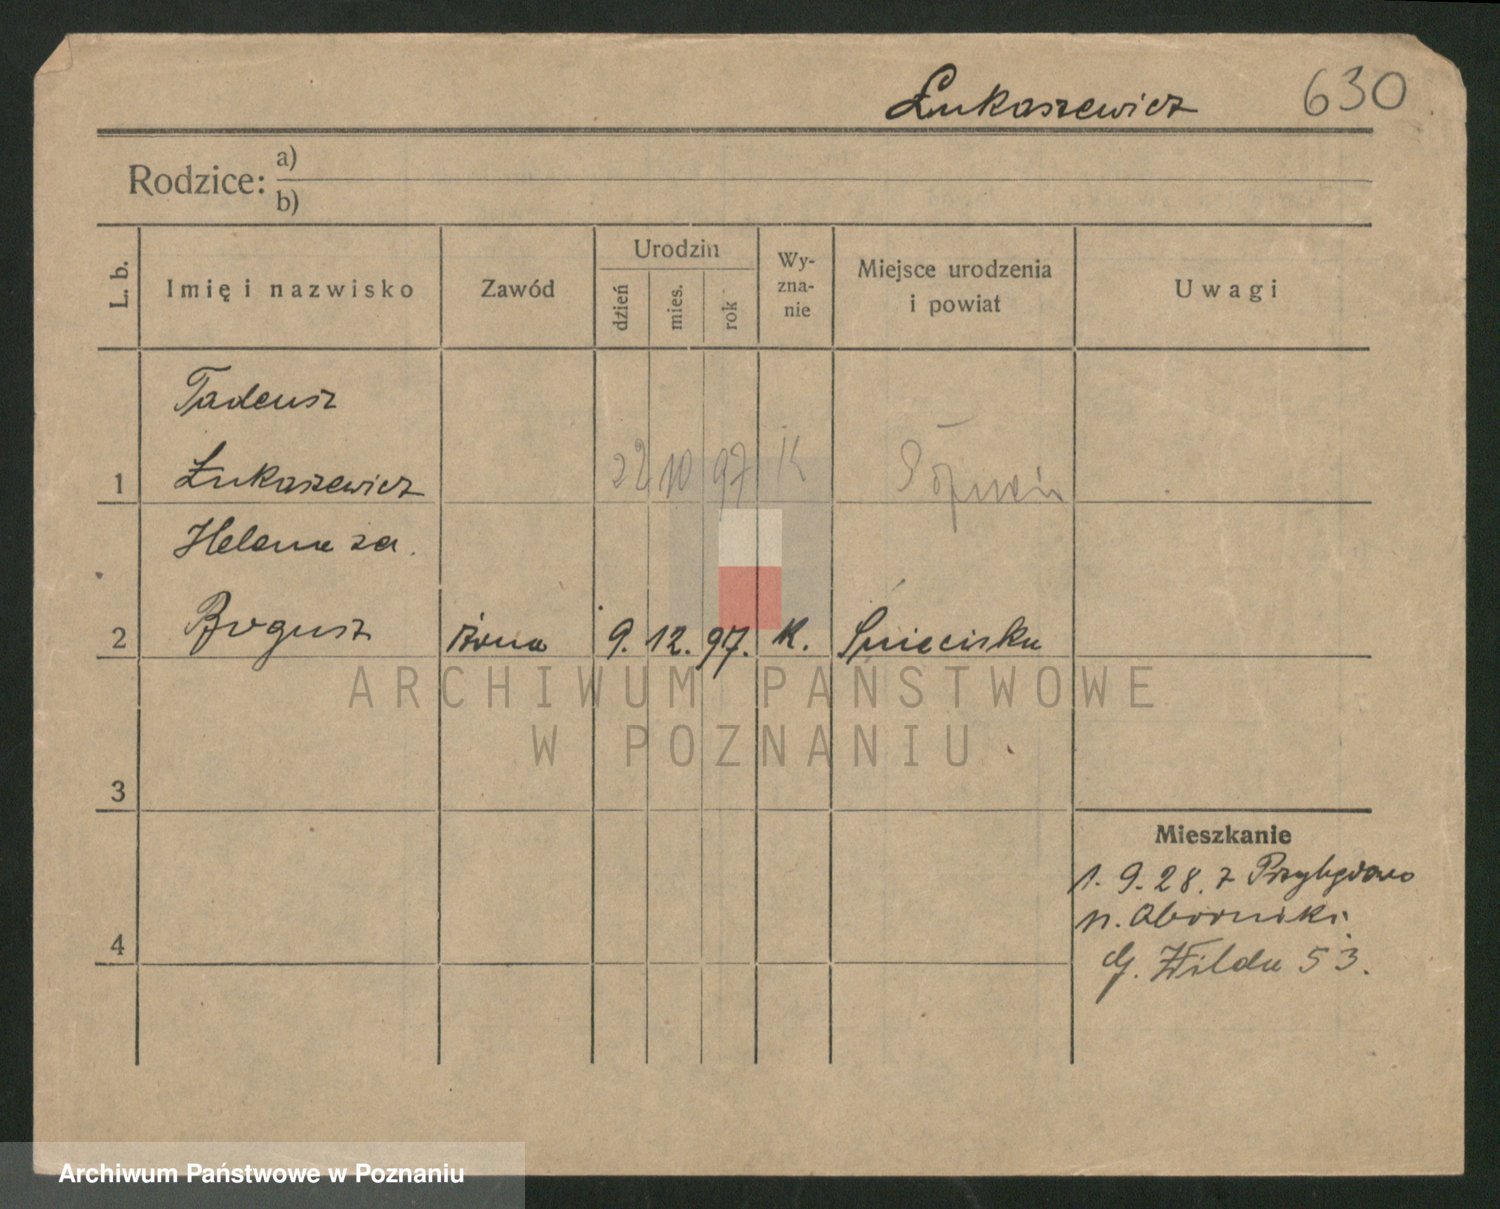 Łukaszewicz 630
Rodzice: a)
b)
L. b. Imię i nazwisko Zawód Urodzin dzień mies. rok Wyznanie Miejsce urodzenia i powiat Uwagi
Tadeusz
1 Łukaszewicz 22 10 97 K
Helena za.
2 Bogusz żona 9. 12. 97. K. Śniecisku
3
Mieszkanie
1. 9. 28. z
n. Oborniki.
4
G. Wilda 53.
ARCHIWUM PAŃSTWOWE
W POZNANIU
Archiwum Państwowe w Poznaniu